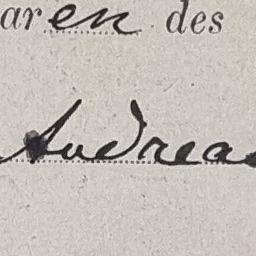 aren des
Andreas